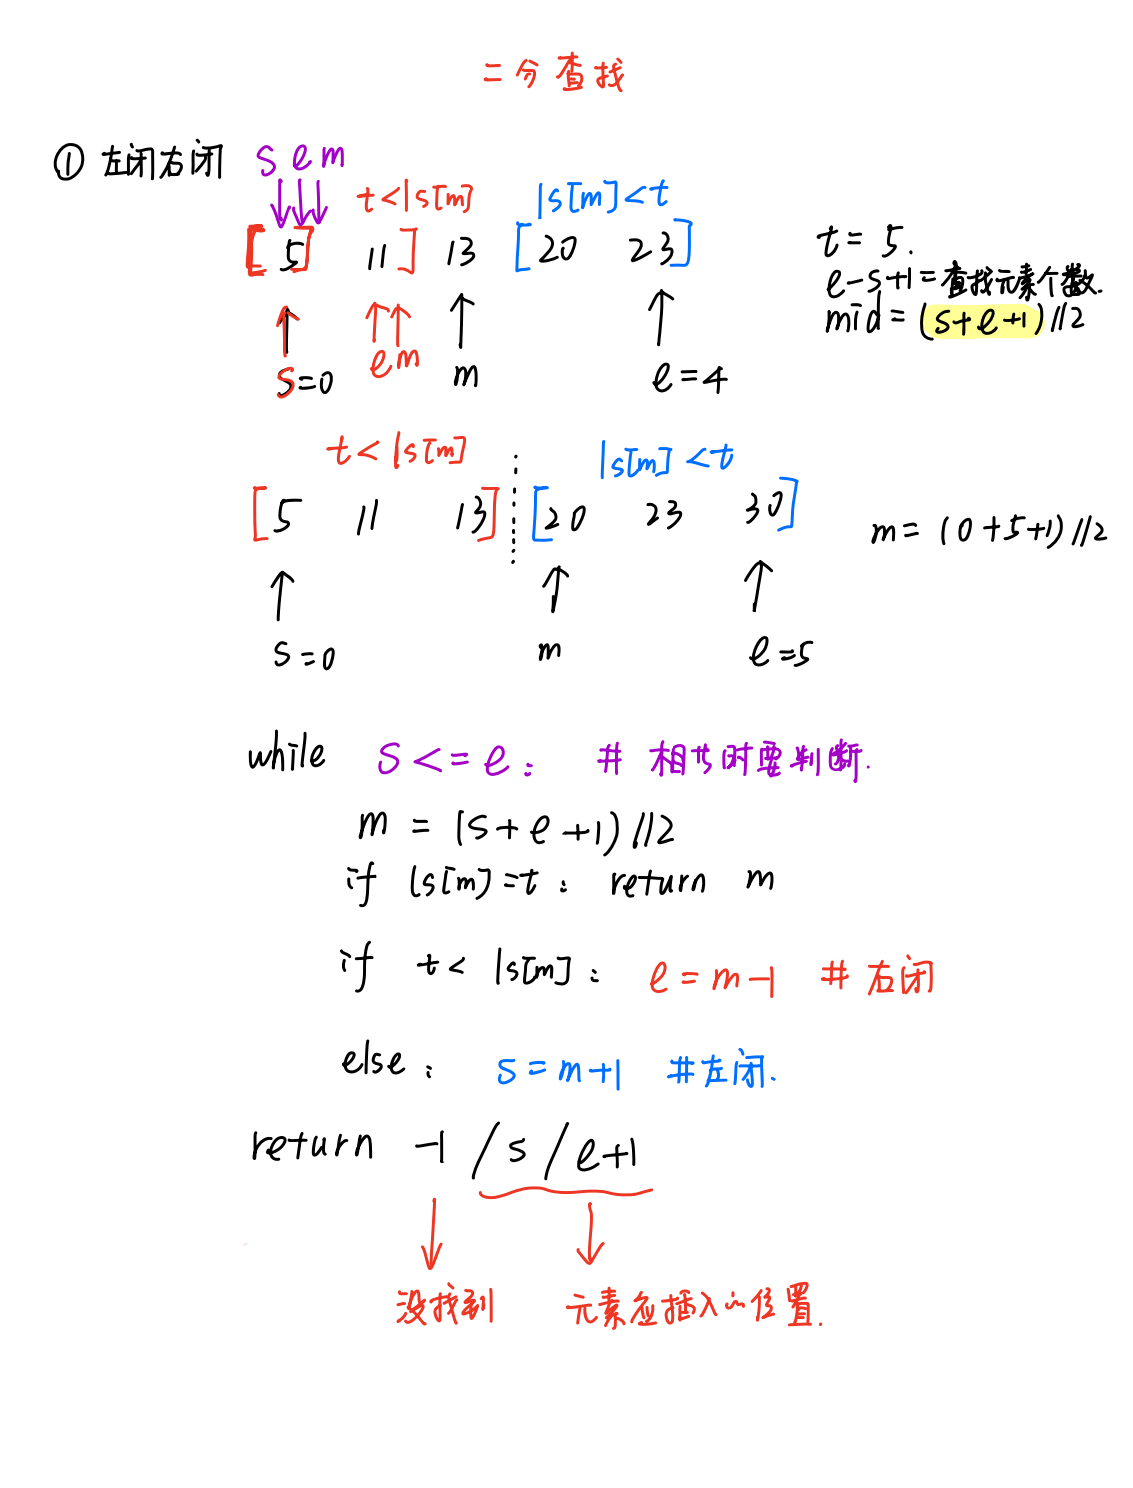 二分查找
① 左闭右闭 s e m
t<ls[m] ls[m]<t
[ 5 ] 11 ] 13 [ 20 23 ]
t = 5.
e-s+1 = 查找元素个数.
mid = (s+e+1)//2
s=0 e m m e=4
t<ls[m] ls[m]<t
[ 5 11 13 ] [ 20 23 30 ]
m = (0+5+1)//2
s=0 m e=5
while s<=e: # 相等时要判断.
m = (s+e+1)//2
if ls[m]=t: return m
if t< ls[m]: e=m-1 # 右闭
else: s=m+1 #左闭.
return -1 / s / e+1
没找到 元素应插入的位置.